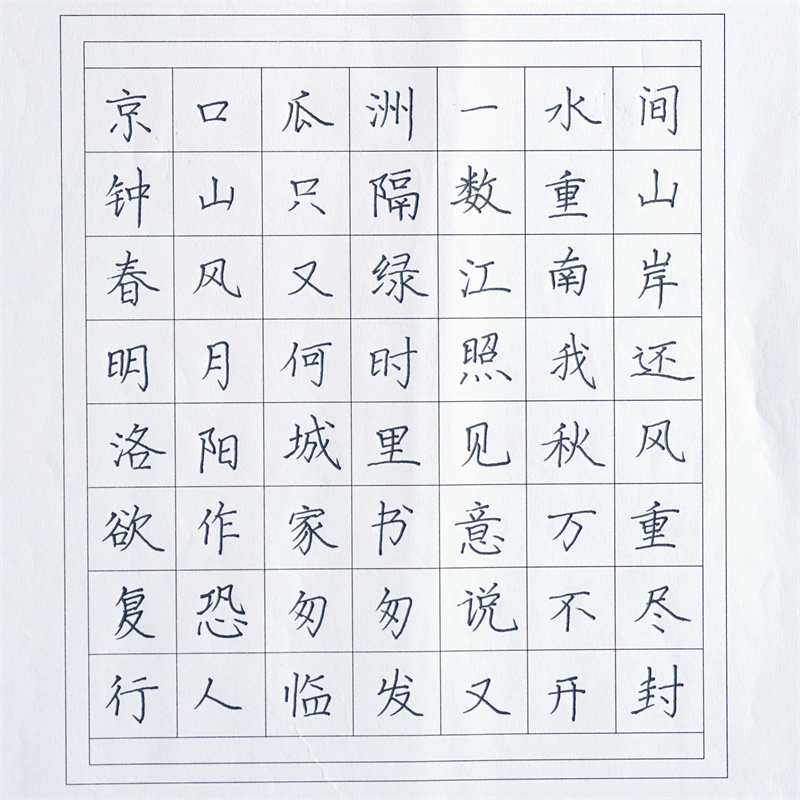 京口瓜洲一水间
钟山只隔数重山
春风又绿江南岸
明月何时照我还
洛阳城里见秋风
欲作家书意万重
复恐匆匆说不尽
行人临发又开封